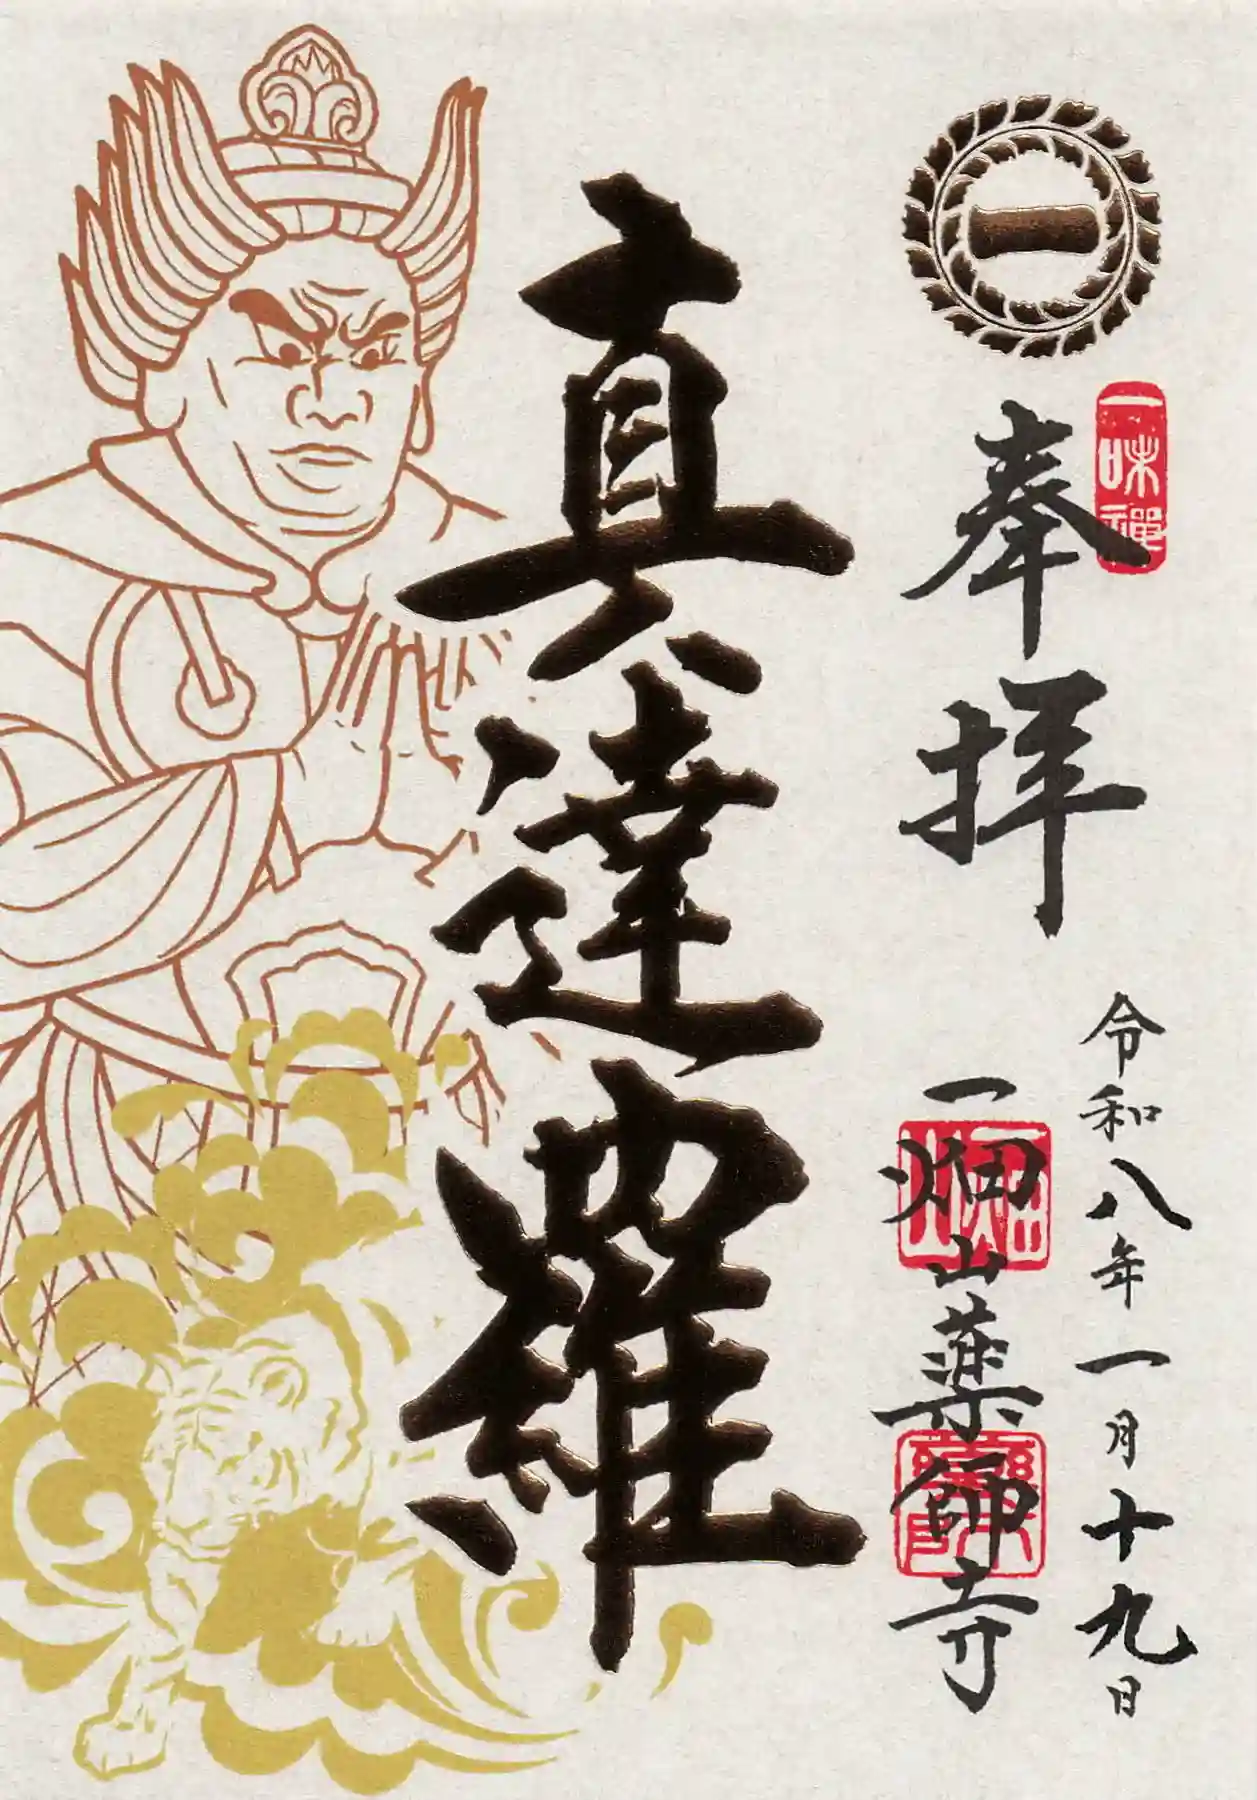 一
一味禅
奉拝
令和八年一月十九日
一畑山薬師寺
一畑山
真達羅